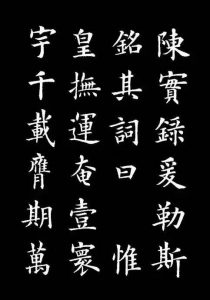 陳實錄爰勒斯
銘其詞曰 惟
皇撫運奄壹寰
宇千載膺期萬